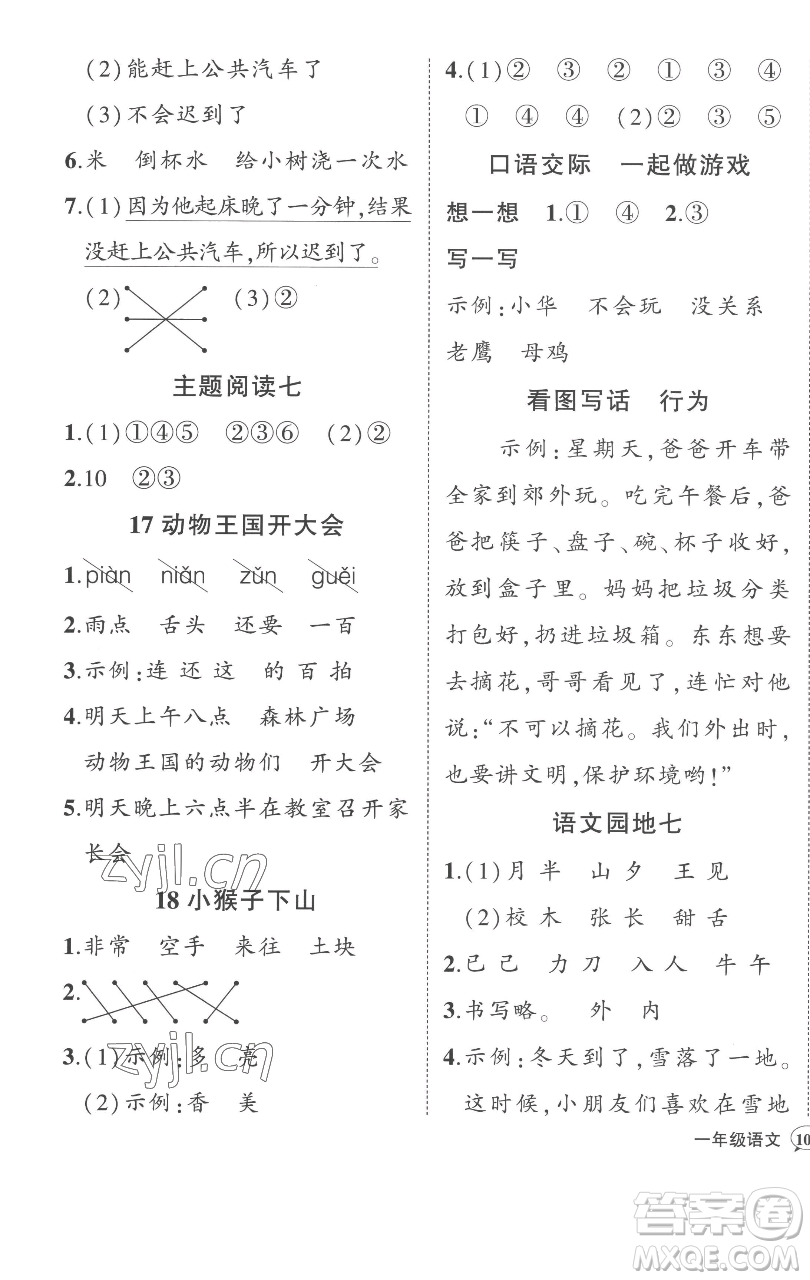 (2)能赶上公共汽车了
(3)不会迟到了
6.米 倒杯水 给小树浇一次水
7.(1)因为他起床晚了一分钟,结果
没赶上公共汽车,所以迟到了。
(2) (3)②
主题阅读七
1.(1)①④⑤ ②③⑥ (2)②
2.10 ②③
17 动物王国开大会
1.piàn niǎn zǔn guěi
2.雨点 舌头 还要 一百
3.示例:连 还 这 的 百 拍
4.明天上午八点 森林广场
动物王国的动物们 开大会
5.明天晚上六点半在教室召开家
长会
zyjl.cn
18 小猴子下山
1.非常 空手 来往 土块
2.
zyjl.cn
3.(1)示例:多 亮
(2)示例:香 美
4.(1)② ③ ② ① ③ ④
① ④ ④ (2)② ③ ⑤
口语交际 一起做游戏
想一想 1.① ④ 2.③
写一写
示例:小华 不会玩 没关系
老鹰 母鸡
看图写话 行为
示例:星期天,爸爸开车带
全家到郊外玩。吃完午餐后,爸
爸把筷子、盘子、碗、杯子收好,
放到盒子里。妈妈把垃圾分类
打包好,扔进垃圾箱。东东想要
去摘花,哥哥看见了,连忙对他
说:“不可以摘花。我们外出时,
也要讲文明,保护环境哟!”
语文园地七
1.(1)月 半 山 夕 王 见
(2)校 木 张 长 甜 舌
2.已 己 力 刀 入 人 牛 午
3.书写略。 外 内
4.示例:冬天到了,雪落了一地。
这时候,小朋友们喜欢在雪地
一年级语文 10
答案圈
MXQE.COM